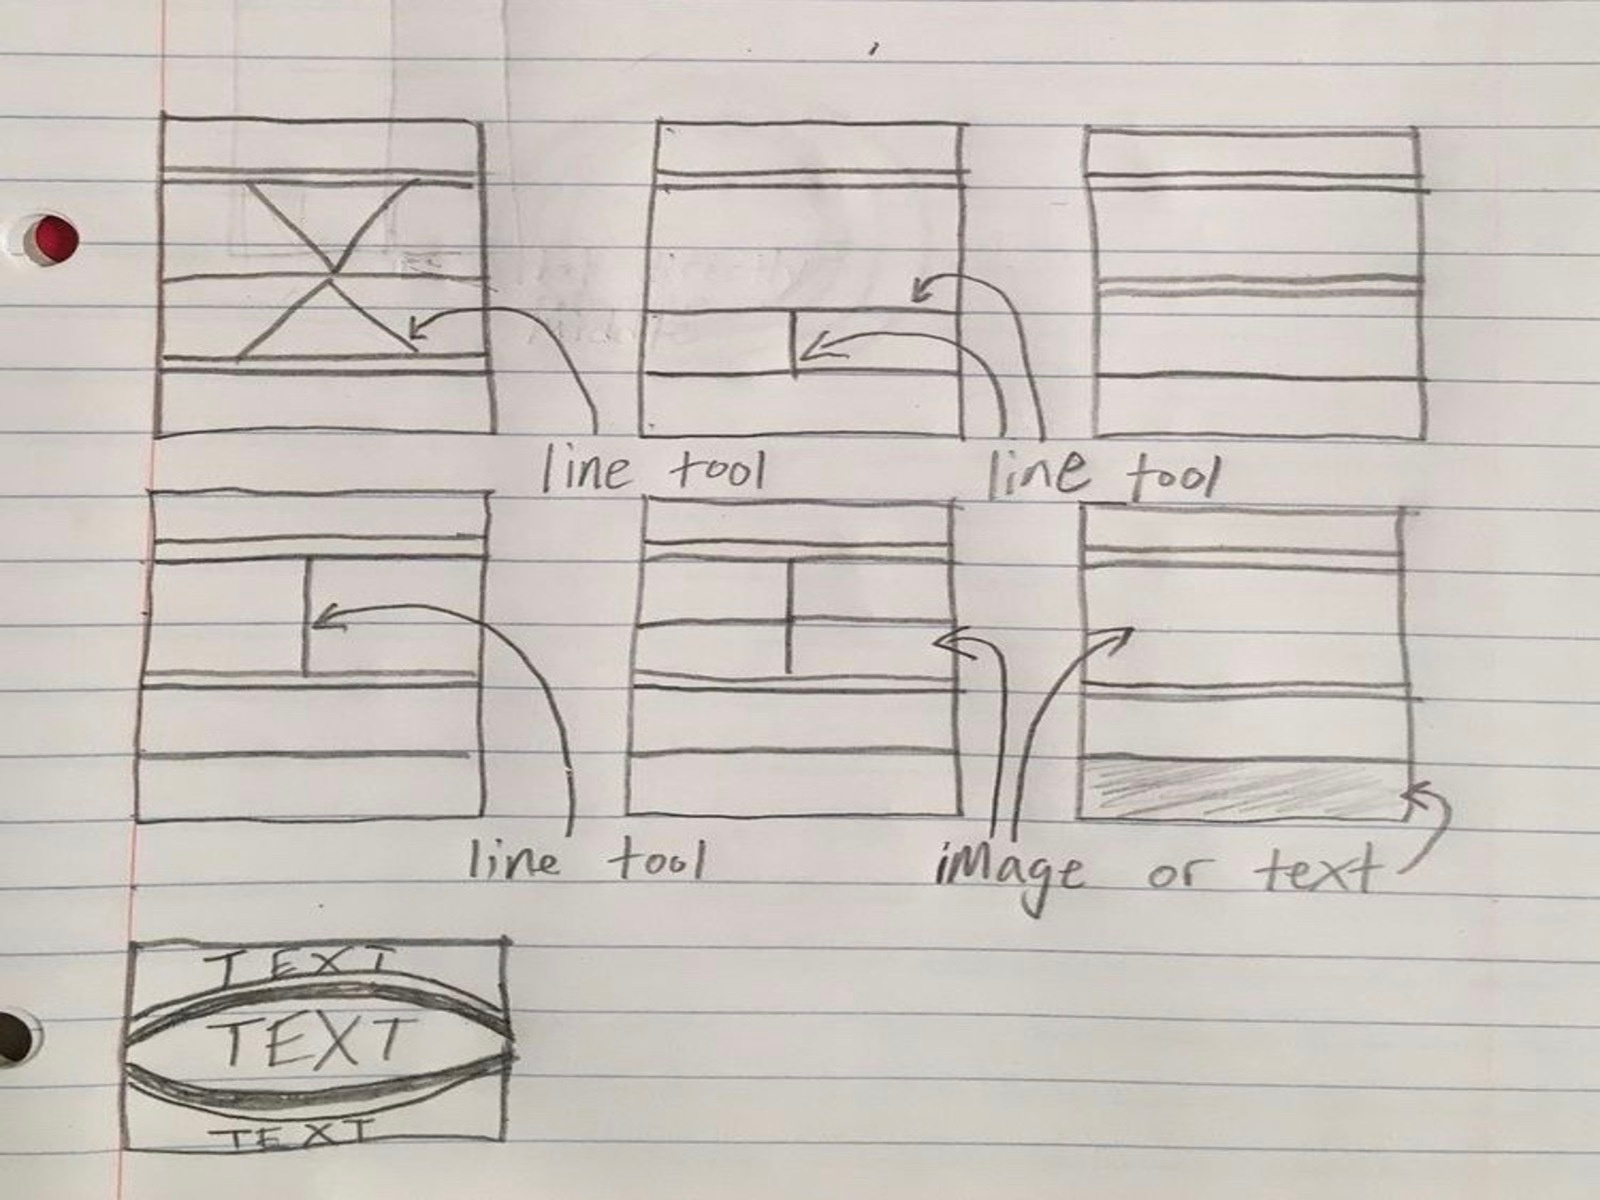 line tool
line tool
line tool
image or text
TEXT
TEXT
TEXT